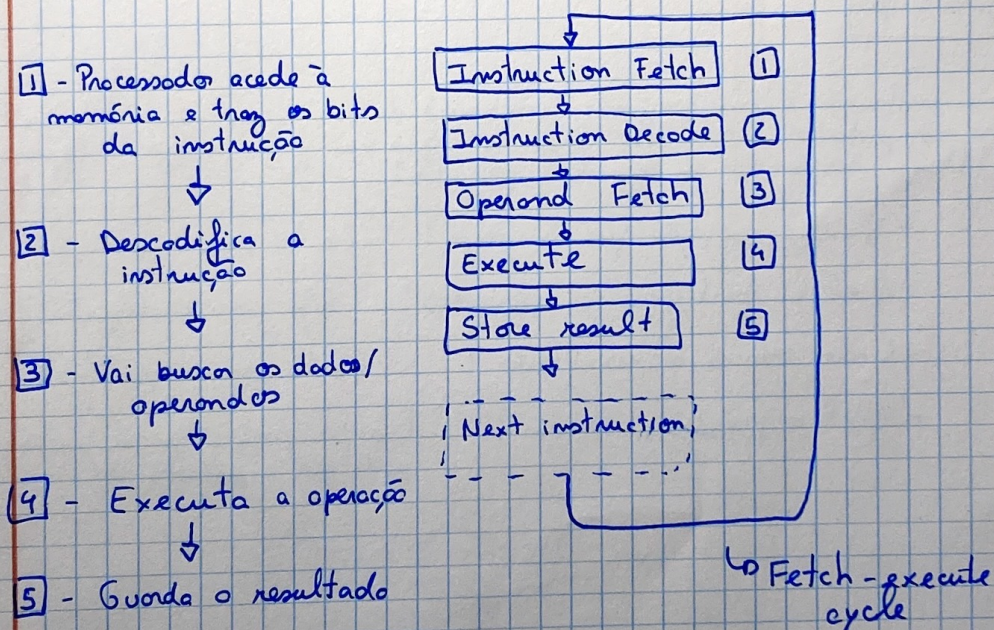 1 - Processador acede à
memória e traz os bits
da instrução
2 - Descodifica a
instrução
3 - Vai buscar os dados/
operandos
4 - Executa a operação
5 - Guarda o resultado
Instruction Fetch 1
Instruction Decode 2
Operand Fetch 3
Execute 4
Store result 5
Next instruction
Fetch-execute
cycle